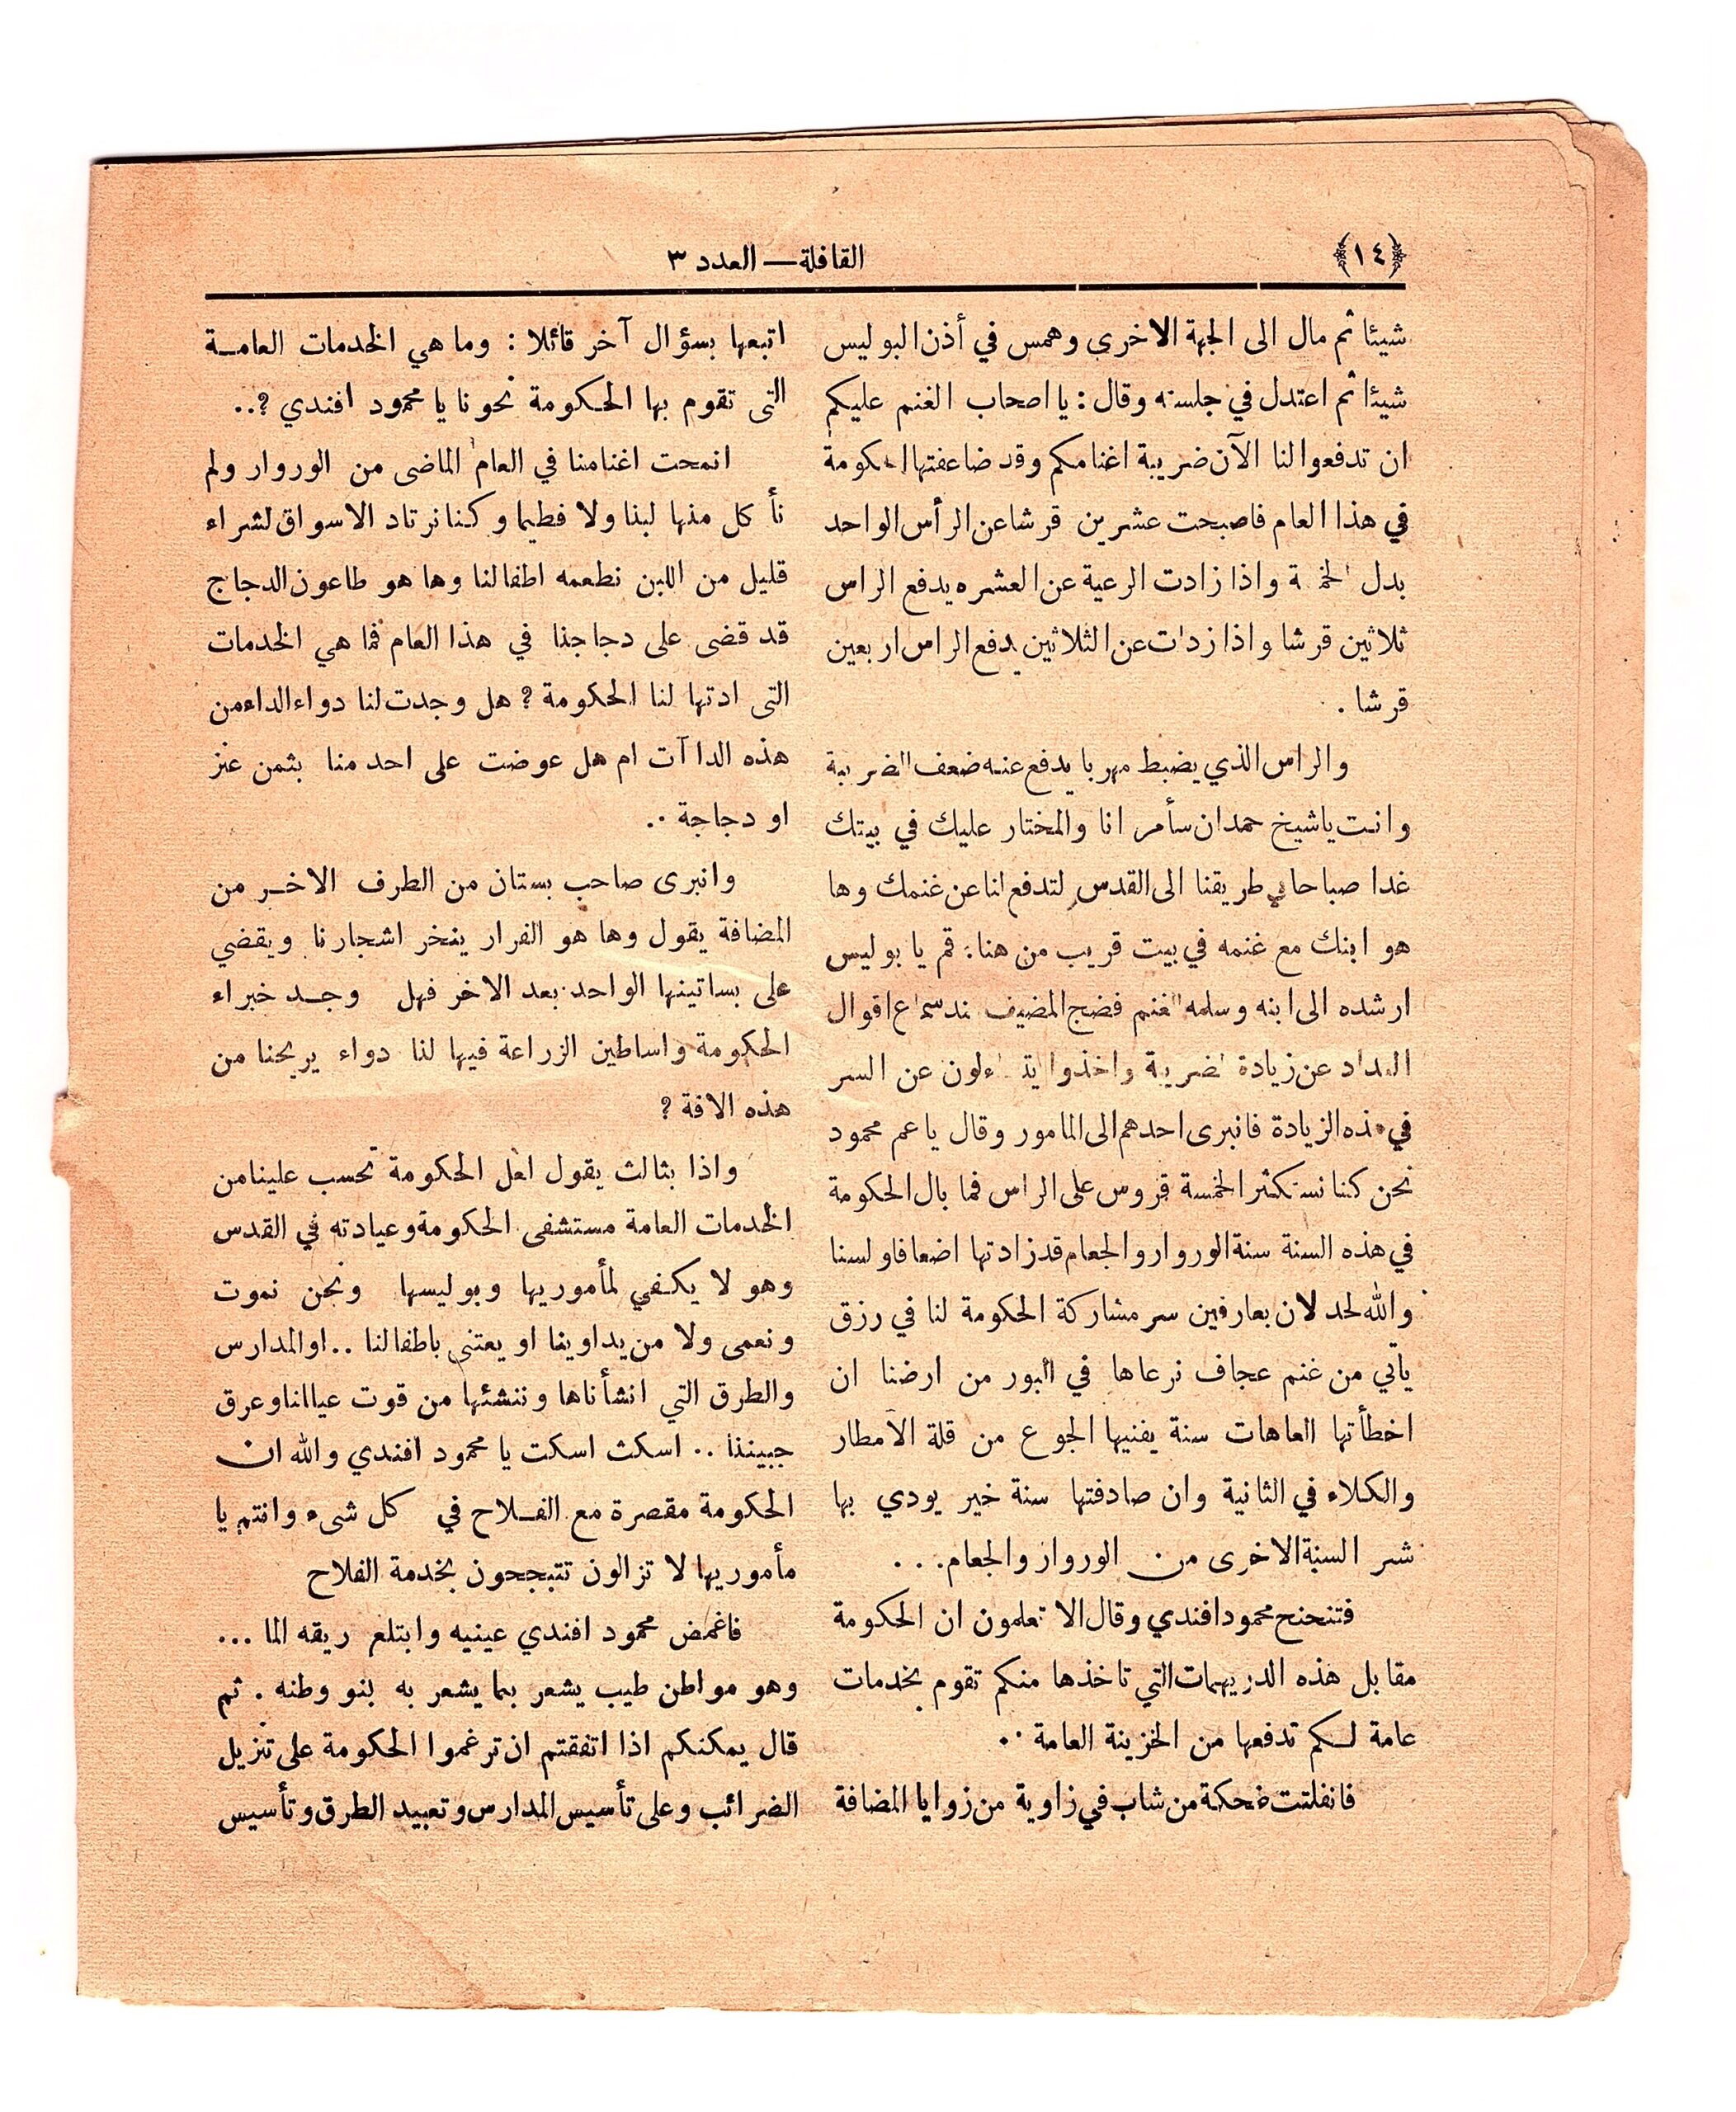 ﴿١٤﴾
القافلة — العدد ٣
شيئا ثم مال الى الجهة الاخرى وهمس في أذن البوليس
شيئا ثم اعتدل في جلسته وقال : يا اصحاب الغنم عليكم
ان تدفعوا لنا الآن ضريبة اغنامكم وقد ضاعفتها الحكومة
في هذا العام فاصبحت عشرين قرشا عن الرأس الواحد
بدل الخمسة واذا زادت الرعية عن العشره يدفع الراس
ثلاثين قرشا واذا زدات عن الثلاثين يدفع الراس اربعين
قرشا .
والراس الذي يضبط مهربا يدفع عنه ضعف الضريبة
وانت ياشيخ حمدان سأمر انا والمختار عليك في بيتك
غدا صباحا في طريقنا الى القدس لتدفع لنا عن غنمك وها
هو ابنك مع غنمه في بيت قريب من هنا : قم يا بوليس
ارشده الى ابنه وسلمه الغنم فضج المضيف عند سماع اقوال
العداد عن زيادة الضريبة واخذوا يتساءلون عن السر
في هذه الزيادة فانبرى احدهم الى المامور وقال ياعم محمود
نحن كنا نستكثر الخمسة قروس على الراس فما بال الحكومة
في هذه السنة سنة الوروار والجعام قد زادتها اضعافا ولسنا
والله لحد لان بعارفين سر مشاركة الحكومة لنا في رزق
يأتي من غنم عجاف نرعاها في البور من ارضنا ان
اخطأتها العاهات سنة يفنيها الجوع من قلة الامطار
والكلاء في الثانية وان صادفتها سنة خير يودي بها
شر السنة الاخرى من الوروار والجعام . . .
فتنحنح محمود افندي وقال الا تعلمون ان الحكومة
مقابل هذه الدريهمات التي تاخذها منكم تقوم بخدمات
عامة لكم تدفعها من الخزينة العامة ..
فانفلتت ضحكة من شاب في زاوية من زوايا المضافة
اتبعها بسؤال آخر قائلا : وما هي الخدمات العامة
التى تقوم بها الحكومة نحونا يا محمود افندي ؟..
انمحت اغنامنا في العام الماضى من الوروار ولم
نأكل منها لبنا ولا فطيما وكنا نرتاد الاسواق لشراء
قليل من اللبن نطعمه اطفالنا وها هو طاعون الدجاج
قد قضى على دجاجنا في هذا العام فما هي الخدمات
التى ادتها لنا الحكومة ؟ هل وجدت لنا دواء الداء من
هذه الداآت ام هل عوضت على احد منا بثمن عنز
او دجاجة ..
وانبرى صاحب بستان من الطرف الاخر من
المضافة يقول وها هو الفرار ينخر اشجارنا ويقضي
على بساتينها الواحد بعد الاخر فهل وجد خبراء
الحكومة واساطين الزراعة فيها لنا دواء يريحنا من
هذه الافة ؟
واذا بثالث يقول لعل الحكومة تحسب علينا من
الخدمات العامة مستشفى الحكومة وعيادته في القدس
وهو لا يكفي لمأموريها وبوليسها ونحن نموت
ونعمى ولا من يداوينا او يعتنى باطفالنا .. او المدارس
والطرق التي انشأناها وننشئها من قوت عيالنا وعرق
جبيننا .. اسكث اسكت يا محمود افندي والله ان
الحكومة مقصرة مع الفلاح في كل شىء وانتم يا
مأموريها لا تزالون تتبجحون بخدمة الفلاح
فاغمض محمود افندي عينيه وابتلع ريقه الما ...
وهو مواطن طيب يشعر بما يشعر به بنو وطنه . ثم
قال يمكنكم اذا اتفقتم ان ترغموا الحكومة على تنزيل
الضرائب وعلى تأسيس المدارس وتعبيد الطرق وتأسيس